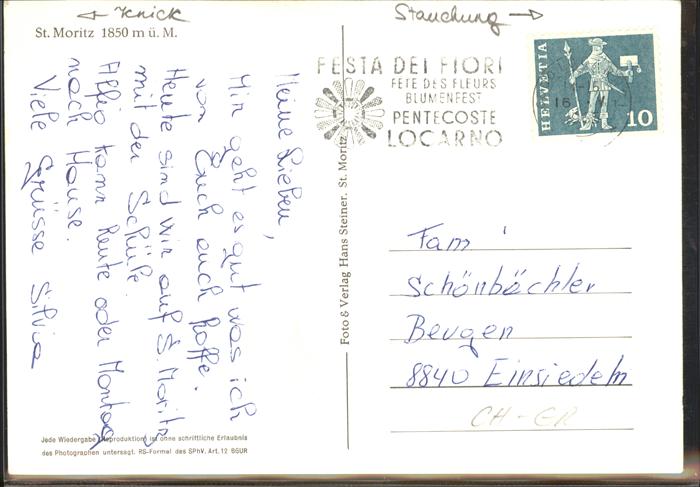 ← Knick
Stauchung →
St. Moritz 1850 m ü. M.
Meine Lieben,
Mir geht es gut was ich
von Euch auch hoffe.
Heute sind wir auf S. Moritz
mit der Schule.
kann heute oder Montag
nach Hause.
Viele Grüsse Silvia
Jede Wiedergabe (Reproduktion) ist ohne schriftliche Erlaubnis
des Photographen untersagt. RS-Formel des SPhV. Art. 12 BGUR
Foto & Verlag Hans Steiner, St. Moritz
FESTA DEI FIORI
FETE DES FLEURS
BLUMENFEST
PENTECOSTE
LOCARNO
HELVETIA
10
Fam.
Schönbächler
Beugen
8840 Einsiedeln
CH-GR